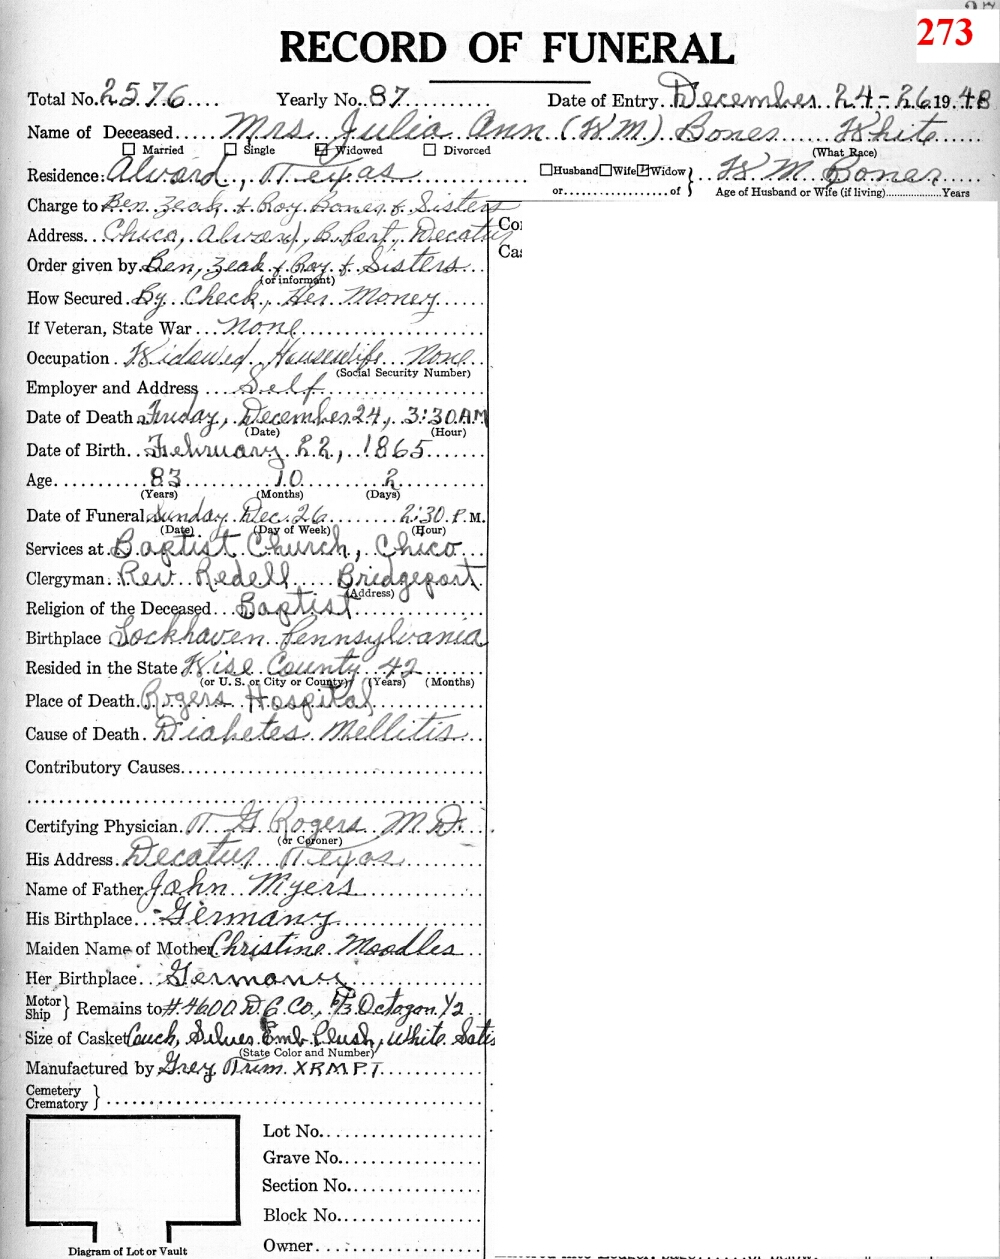 273
RECORD OF FUNERAL
Total No. 2576 Yearly No. 87 Date of Entry December 24-26 1948
Name of Deceased Mrs. Julia Ann (W.M.) Bones White
☐ Married ☐ Single ☑ Widowed ☐ Divorced (What Race)
Residence: Alvord, Texas ☐Husband☐Wife☑Widow} W.M. Bones
or of Age of Husband or Wife (if living) Years
Charge to Ben, Zeak & Roy Bones & Sisters
Address Chico, Alvord, B. Port, Decatur
Order given by Ben, Zeak & Roy & Sisters
(or informant)
How Secured By Check, Her Money
If Veteran, State War None
Occupation Widowed Housewife None
(Social Security Number)
Employer and Address Self
Date of Death Friday, December 24, 3:30 AM
(Date) (Hour)
Date of Birth February 22, 1865
Age 83 10 2
(Years) (Months) (Days)
Date of Funeral Sunday Dec. 26 2:30 P.M.
(Date) (Day of Week) (Hour)
Services at Baptist Church, Chico
Clergyman Rev Redell Bridgeport
(Address)
Religion of the Deceased Baptist
Birthplace Lockhaven Pennsylvania
Resided in the State Wise County 42
(or U. S. or City or County) (Years) (Months)
Place of Death Rogers Hospital
Cause of Death Diabetes Mellitis
Contributory Causes
Certifying Physician T G Rogers M.D.
(or Coroner)
His Address Decatur Texas
Name of Father John Myers
His Birthplace Germany
Maiden Name of Mother Christine Moodles
Her Birthplace Germany
Motor
Ship } Remains to #4600 D.C. Co., 6/3 Octagon 1/2
Size of Casket Couch, Silver Emb. Plush, White Satin
(State Color and Number)
Manufactured by Grey Trim. XRMPT
Cemetery
Crematory }
Lot No.
Grave No.
Section No.
Block No.
Owner
Diagram of Lot or Vault